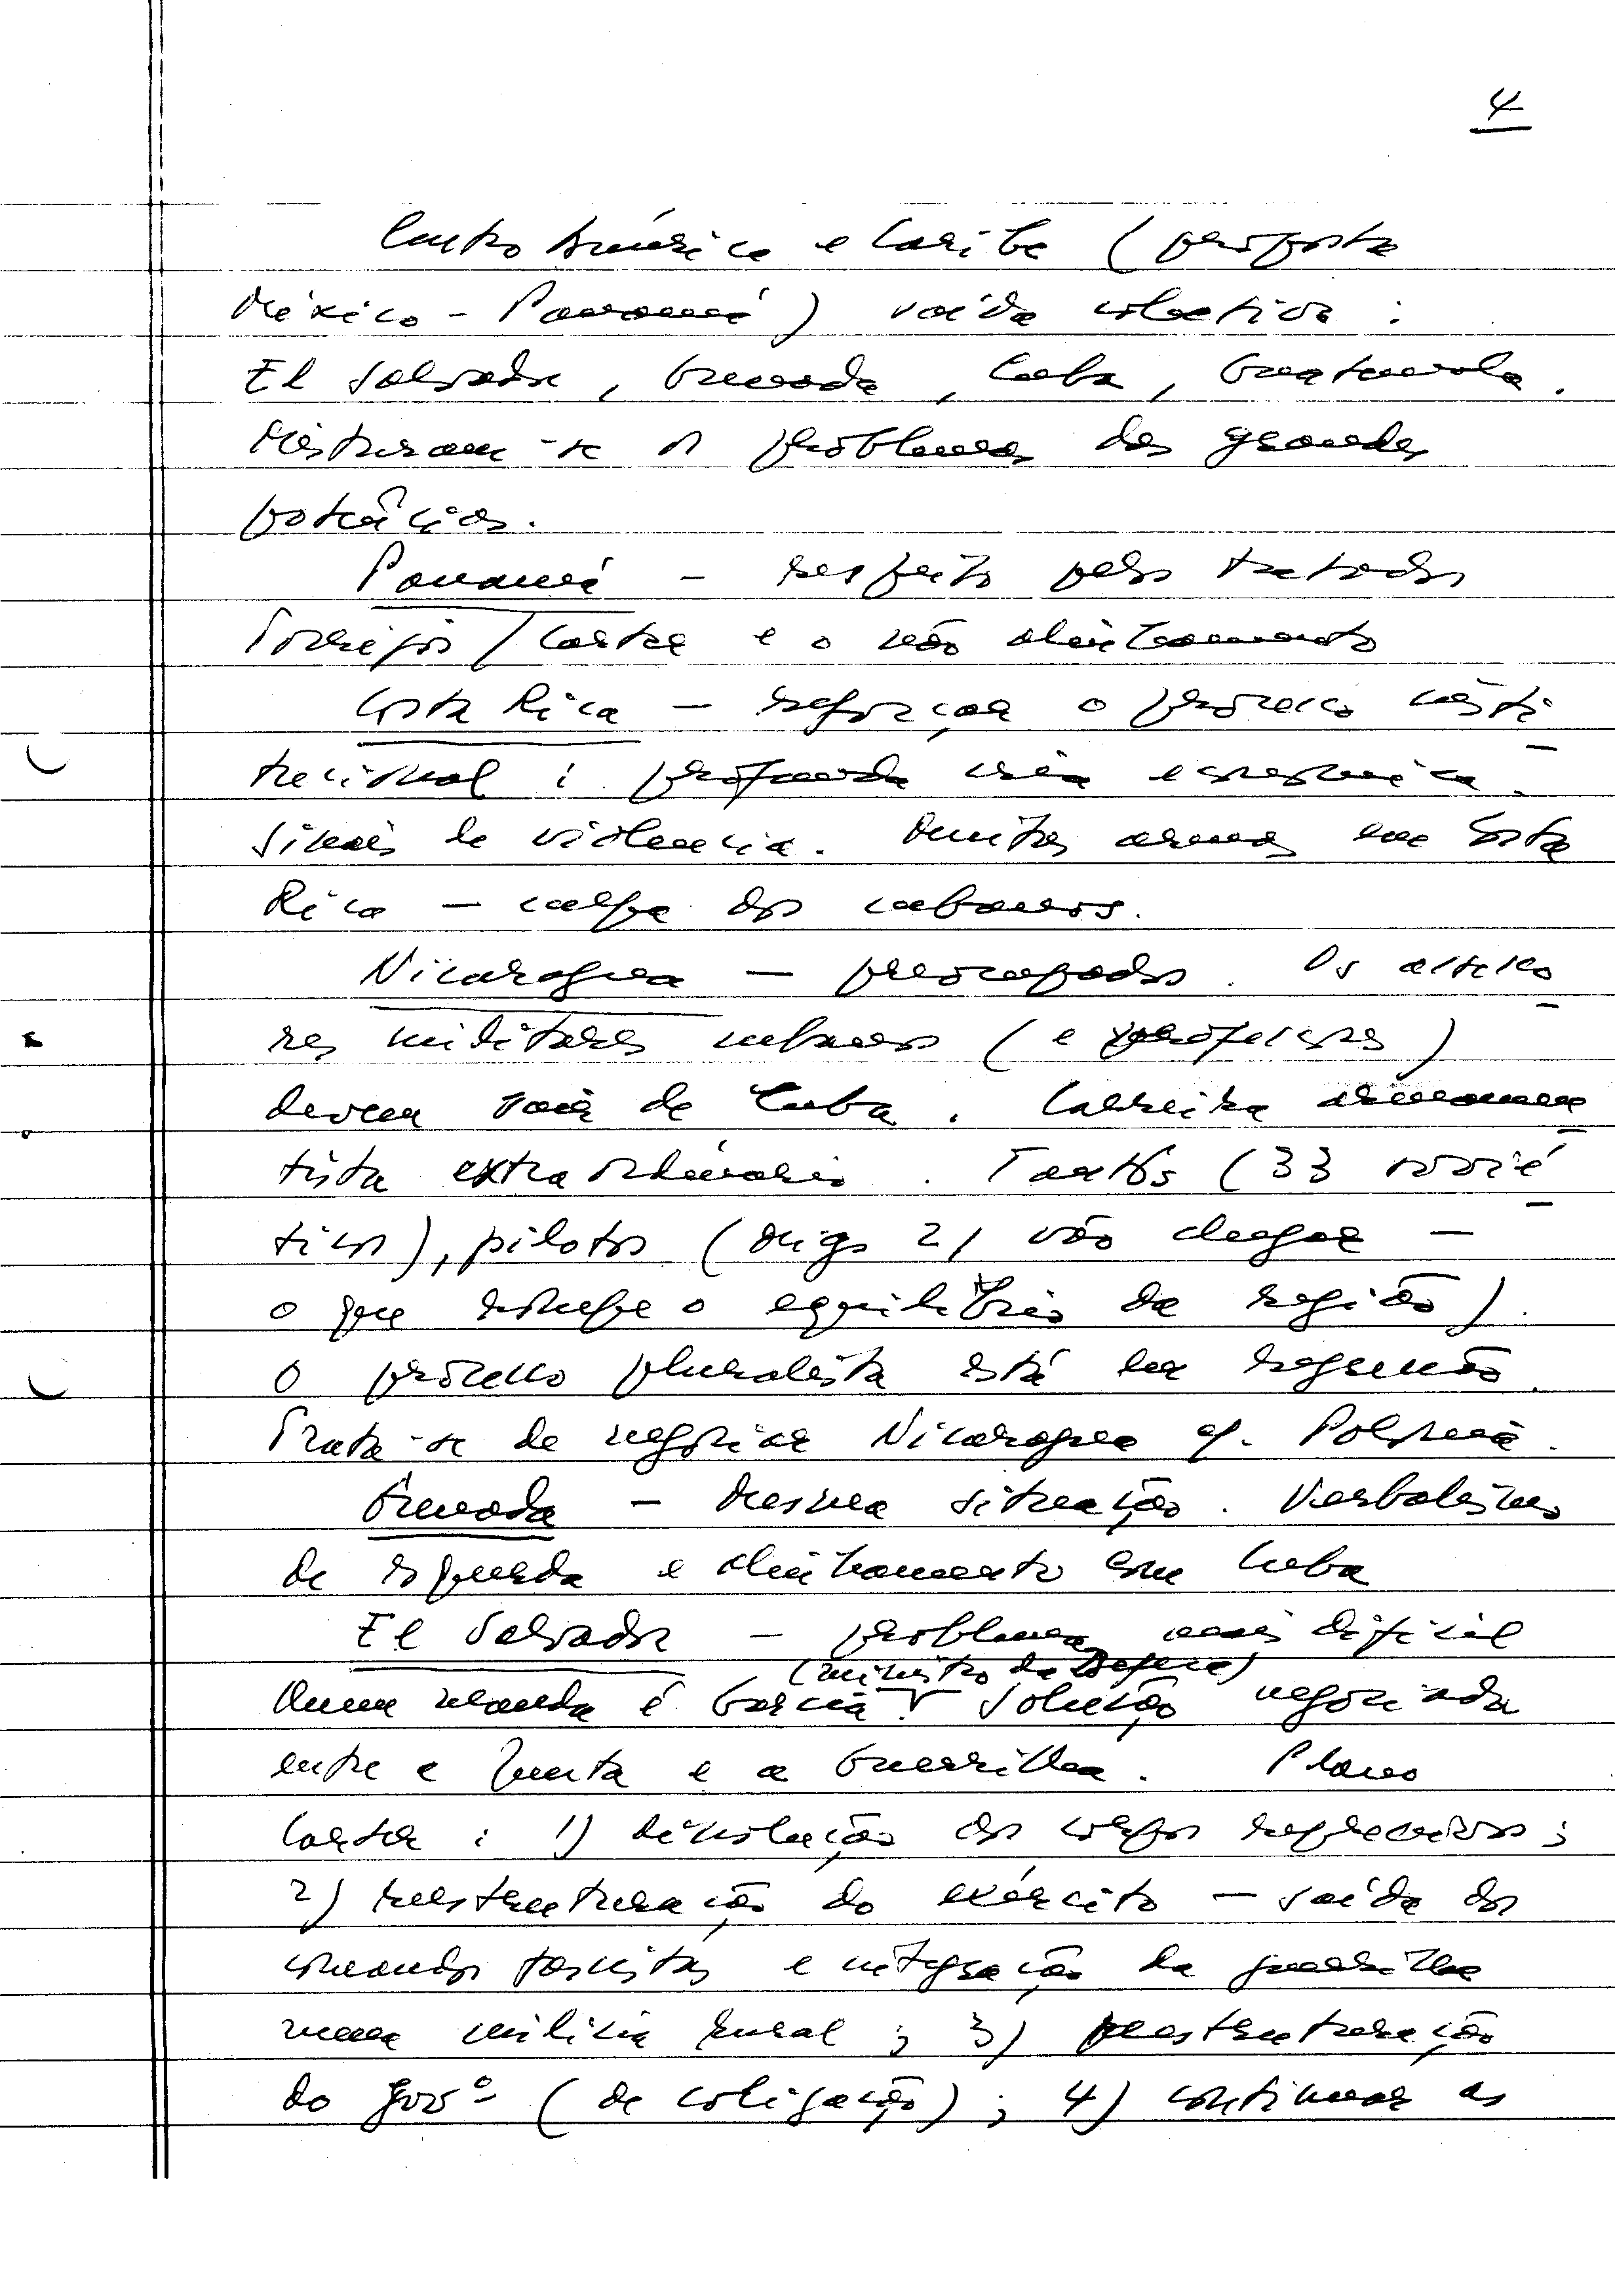 4
Centro América e Caribe (proposta
México - Panamá) saída colectiva :
El Salvador, Grenada, Cuba, Guatemala.
Misturam-se os problemas das grandes
potências.
Panamá - respeito pelos tratados
Torrijos / Carter e o não alinhamento
Costa Rica - reforçar o processo consti-
tucional ; profunda crise económica.
Sinais de violencia. Muitas armas em Costa
Rica - culpa dos cubanos.
Nicaragua - preocupados. Os assesso-
res militares cubanos (e professores)
devem sair de Cuba. Carreira armamen-
tista extraordinária. Tanks (33 sovié-
ticos), pilotos (Migs 21 vão chegar -
o que rompe o equilíbrio da região).
O processo pluralista está em regressão.
Trata-se de negociar Nicaragua cf. Polonia.
Grenada - mesma situação. Verbalismo
de esquerda e alinhamento com Cuba
El Salvador - problema mais dificil
(ministro da Defesa)
Quem manda é Garcia. Solução negociada
entre a Junta e a Guerrilha. Plano
Carter : 1) dissolução dos corpos repressivos ;
2) reestruturação do exército - saída dos
comandos fascistas e integração da guerrilha
numa milicia rural ; 3) reestruturação
do govº (de coligação) ; 4) continuar as